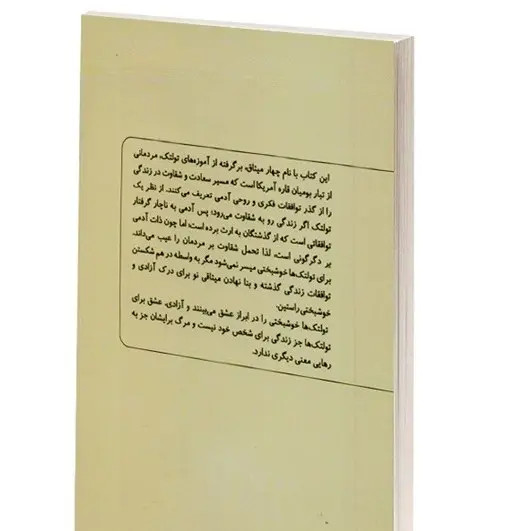 این کتاب با نام چهار میثاق، برگرفته از آموزه‌های تولتک، مردمانی
از تبار بومیان قاره آمریکا است که مسیر سعادت و شقاوت در زندگی
را از گذر توافقات فکری و روحی آدمی تعریف می‌کنند. از نظر یک
تولتک اگر زندگی رو به شقاوت می‌رود؛ پس آدمی به ناچار گرفتار
توافقاتی است که از گذشتگان به ارث برده است، اما چون ذات آدمی
بر دگرگونی است، لذا تحمل شقاوت بر مردمان را عیب می‌داند.
برای تولتک‌ها خوشبختی میسر نمی‌شود مگر به واسطه در هم شکستن
توافقات زندگی گذشته و بنا نهادن میثاقی نو برای درک آزادی و
خوشبختی راستین.
تولتک‌ها خوشبختی را در ابراز عشق می‌بینند و آزادی. عشق برای
تولتک‌ها جز زندگی برای شخص خود نیست و مرگ برایشان جز به
رهایی معنی دیگری ندارد.